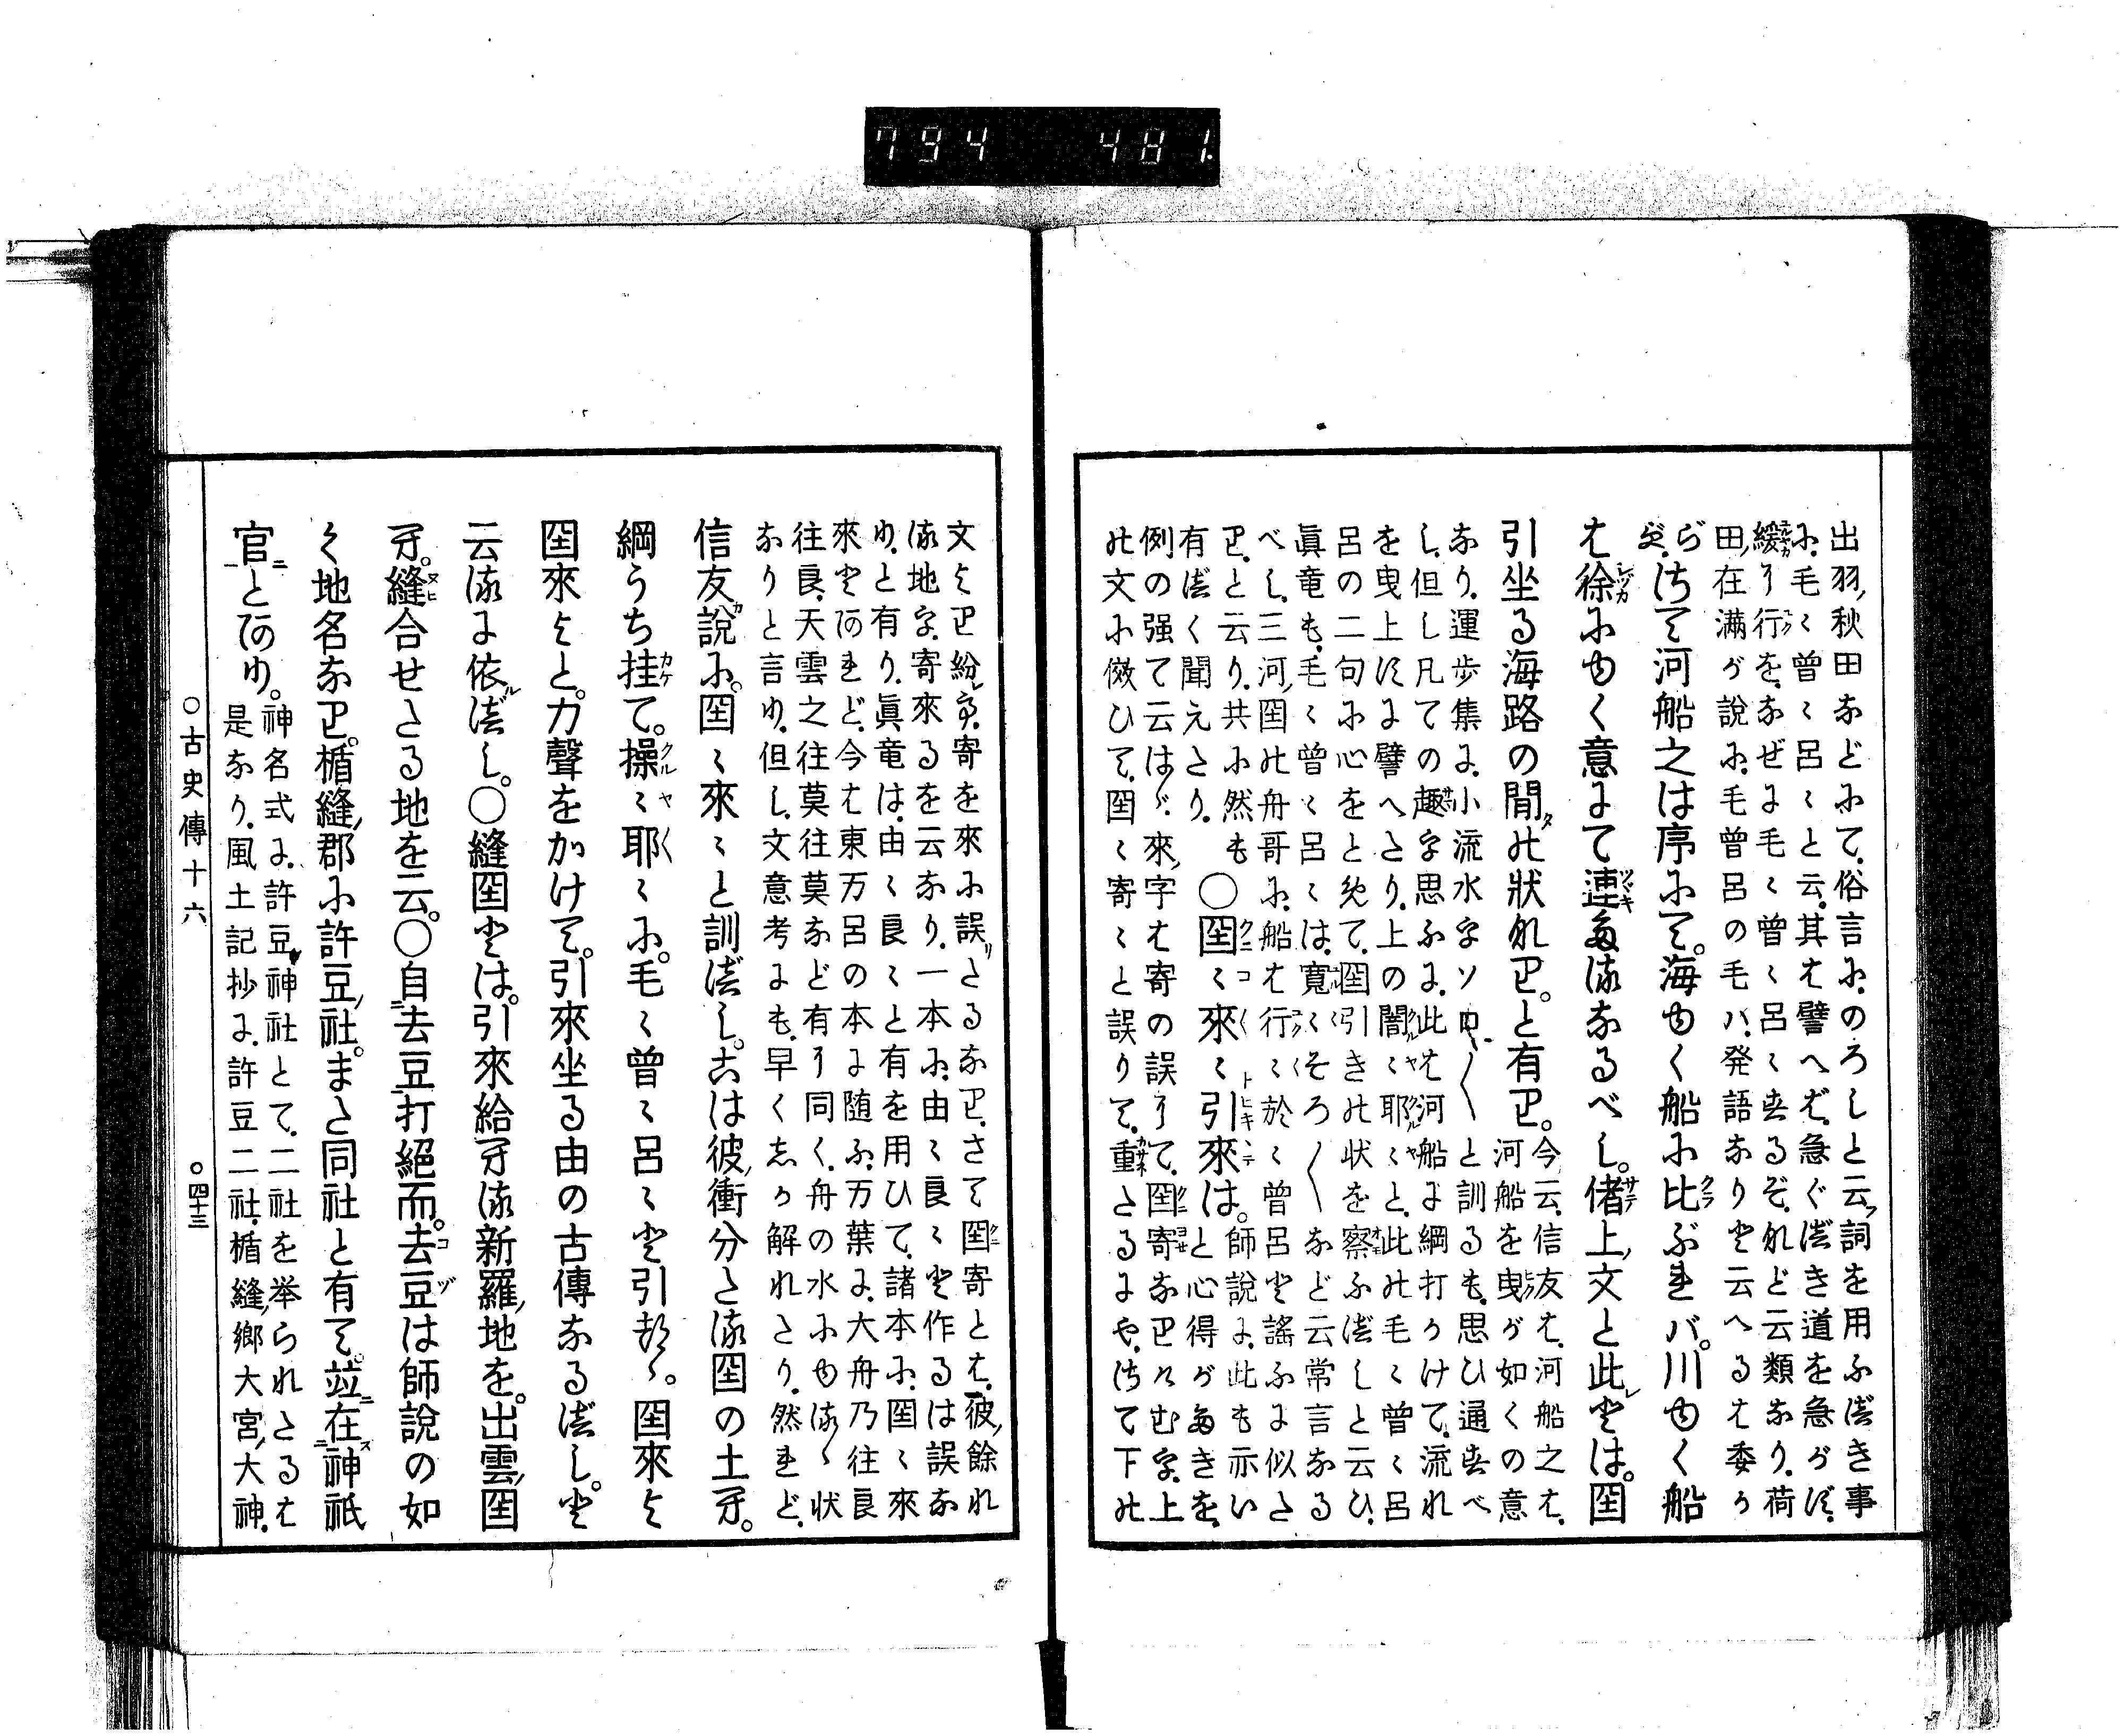 794 481.
出羽秋田などにて、俗言に、のろしと云詞を用ふべき事
に、毛〻曾〻呂〻と云、其は譬へば、急ぐべき道を急がず、
緩り行を、なぜに毛〻曾〻呂〻するぞ、れど云類なり、荷
田在満が說に、毛曾呂の毛バ、発語なりと云へるは委か
らず、さて河船之は序にて。海ゆく船に比ぶれバ。川ゆく船
は徐にゆく意にて連けたるなるべし。偖上文と此とは。国
引坐る海路の間の狀れり。と有り。
今云、信友は、河船之は、
河船を曳が如くの意
なり、運歩集に、小流水字ソロ〳〵と訓るも、思ひ通すべ
し、但し凡ての趣を思ふに、此は河船に綱打かけて、流れ
を曳上ぼるに譬へたり、上の闇〻耶〻と、此の毛〻曾〻呂
呂の二句に心をとめて、国引きの状を察ふべしと云ひ、
眞竜も、毛〻曾〻呂〻は、寛〻そろ〳〵など云常言なる
べし、三河国の舟哥に、船は行〻於〻曾呂と謡ふに似た
り、と云り、共に然も
有べく聞えたり、
○国〻來〻引來は。
師說に、此も示い
と心得がたきを、
例の强て云はゞ、來字は寄の誤りて、国寄なりけむを、上
の文に傚ひて、国〻寄〻と誤りて、重たるにや、さて下の
文より紛れ、寄を來に誤りたるなり、さて国寄とは、彼餘れ
る地を、寄來るを云なり、一本に、由〻良〻と作るは誤な
り、と有り、眞竜は、由〻良〻と有を用ひて、諸本に、国〻來
來とあれど、今は東万呂の本に随ふ、万葉に、大舟乃往良
往良、天雲之往莫往莫など有り同く、舟の水にゆるゝ状
なりと言り、但し、文意考にも、早くしか解れたり、然れど、
信友說に。国〻來〻と訓べし。こは彼衝分たる国の土を。
綱うち挂て。操〻耶〻に。毛〻曾〻呂〻と引都ゝ。国來と
国來とと。力聲をかけて。引來坐る由の古傳なるべし。と
云るに依べし。○縫国とは。引來給へる新羅地を。出雲国
に。縫合せたる地を云。○自去豆打絕而。去豆は師說の如
く地名なり。楯縫郡に許豆社。また同社と有て。竝在神祇
官とあり。
神名式に、許豆神社とて、二社を举られたるは
是なり、風土記抄に、許豆二社、楯縫鄉大宮大神、
○古史傳十六
○四十三